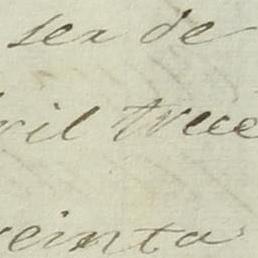 sea de
ril trece
einta